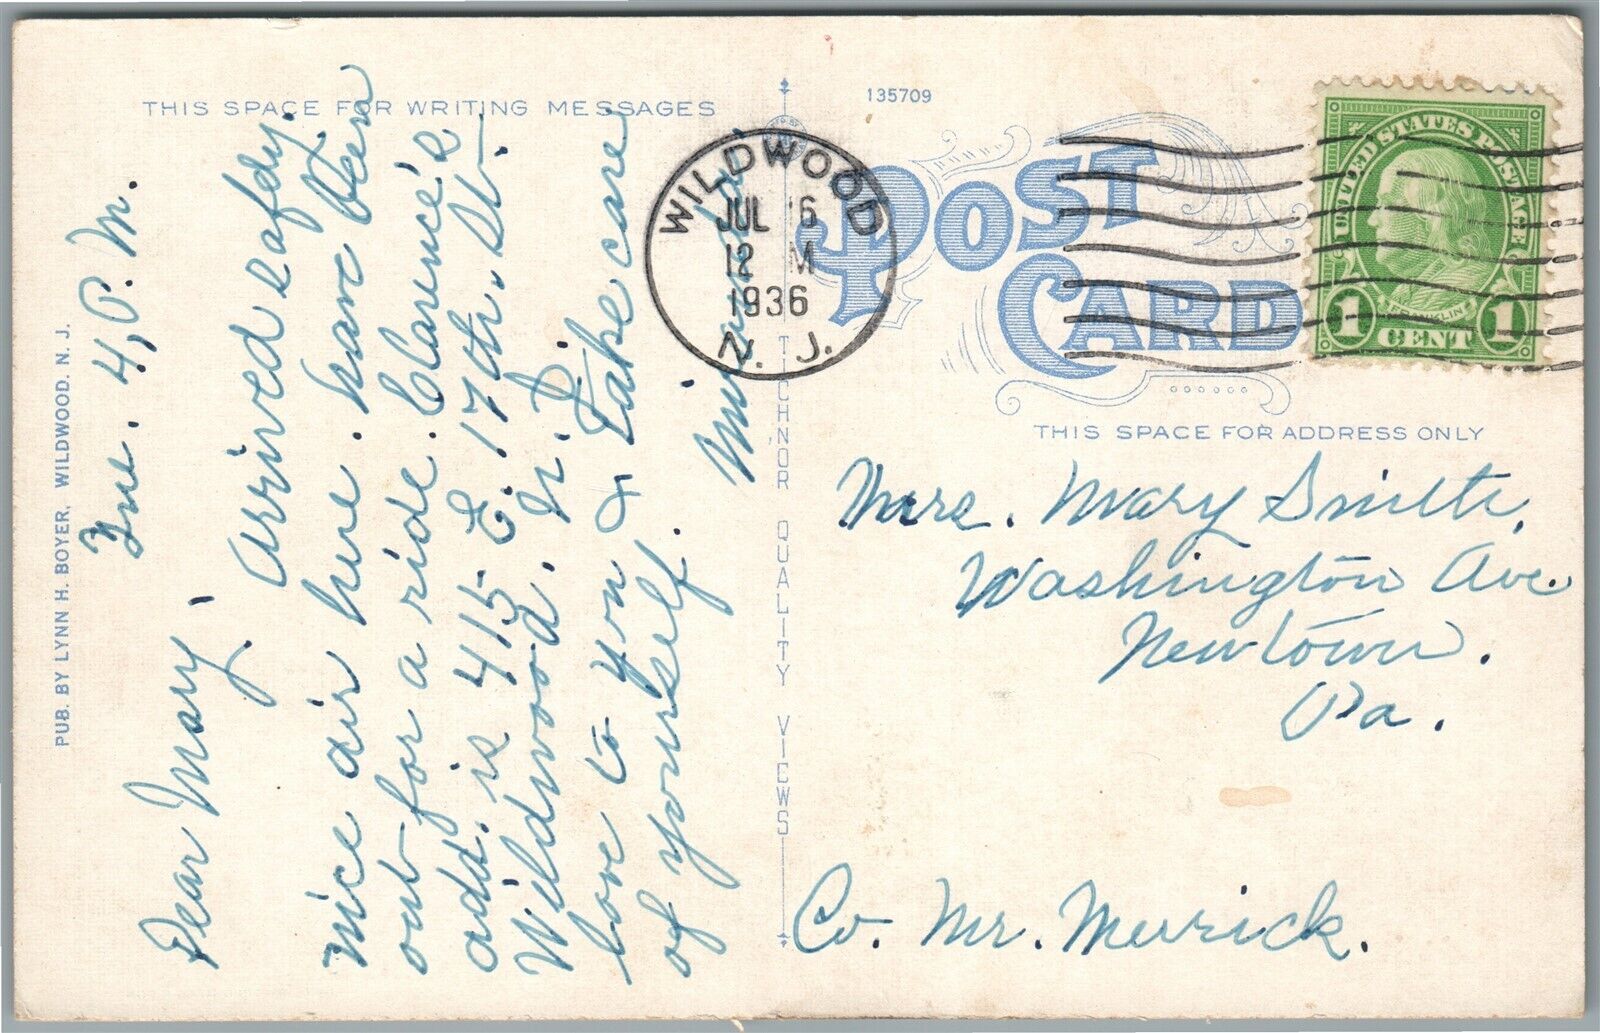 THIS SPACE FOR WRITING MESSAGES
Tue. 4, P.M.
Dear Mary.
Arrived safely.
Nice air here. have been
out for a ride. Clarence's
add. is 415 E. 17th. St.
Wildwood. N. J.
love to you & Take care
of yourself.
PUB. BY LYNN H. BOYER, WILDWOOD, N. J.
TICHNOR QUALITY VIEWS
135709
POST CARD
WILDWOOD
JUL 6
12 M
1936
N. J.
UNITED STATES POSTAGE
FRANKLIN
1 CENT 1
THIS SPACE FOR ADDRESS ONLY
Mrs. Mary Smith,
Washington Ave.
Newtown.
Pa.
Co. Mr. Merrick.